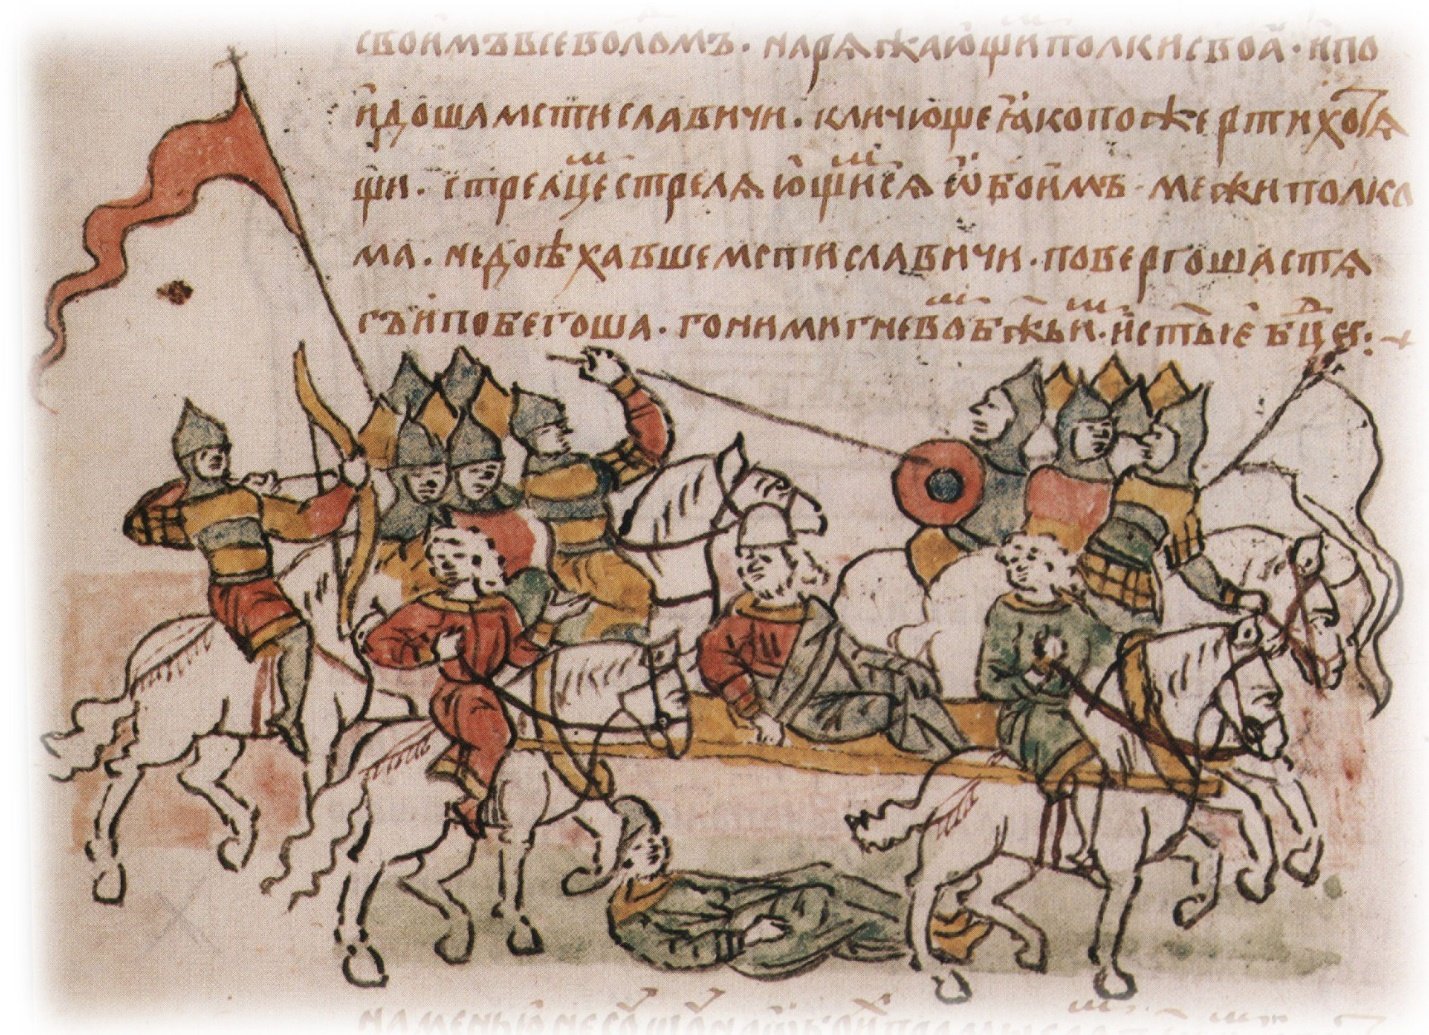 своимъ всеволомъ · нарѧжающи полки своѧ · и по
идоша мстиславичи · кличюще ꙗко пожерти хотѧ
щи · стрелцеⷨ стрелѧющиⷨсѧ ѡбоимъ · межи полко
ма · не доѣхавше мстиславичи · повергоша стѧ
гъ и побегоша · гоними гневоⷨ бж҃ьиⷨ · и ст҃ые бц҃ѣ :